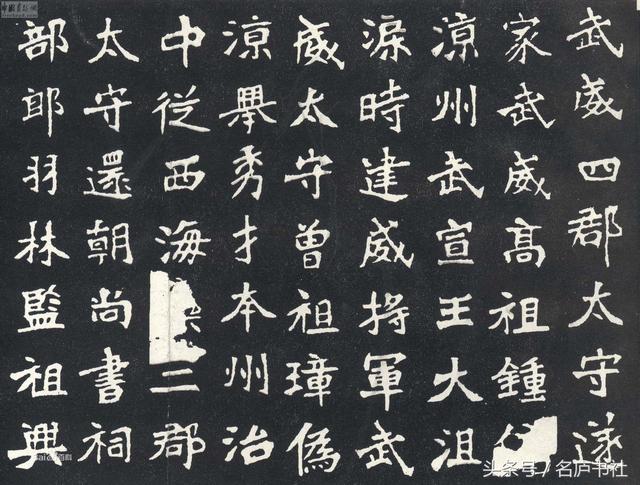 武威四郡太守遂
家武威高祖鍾
涼州武宣王大沮
渠時建威將軍武
威太守曾祖璋偽
涼舉秀才本州治
中從西海二郡
太守還朝尚書祠
部郎羽林監祖興
头条号/名庐书社